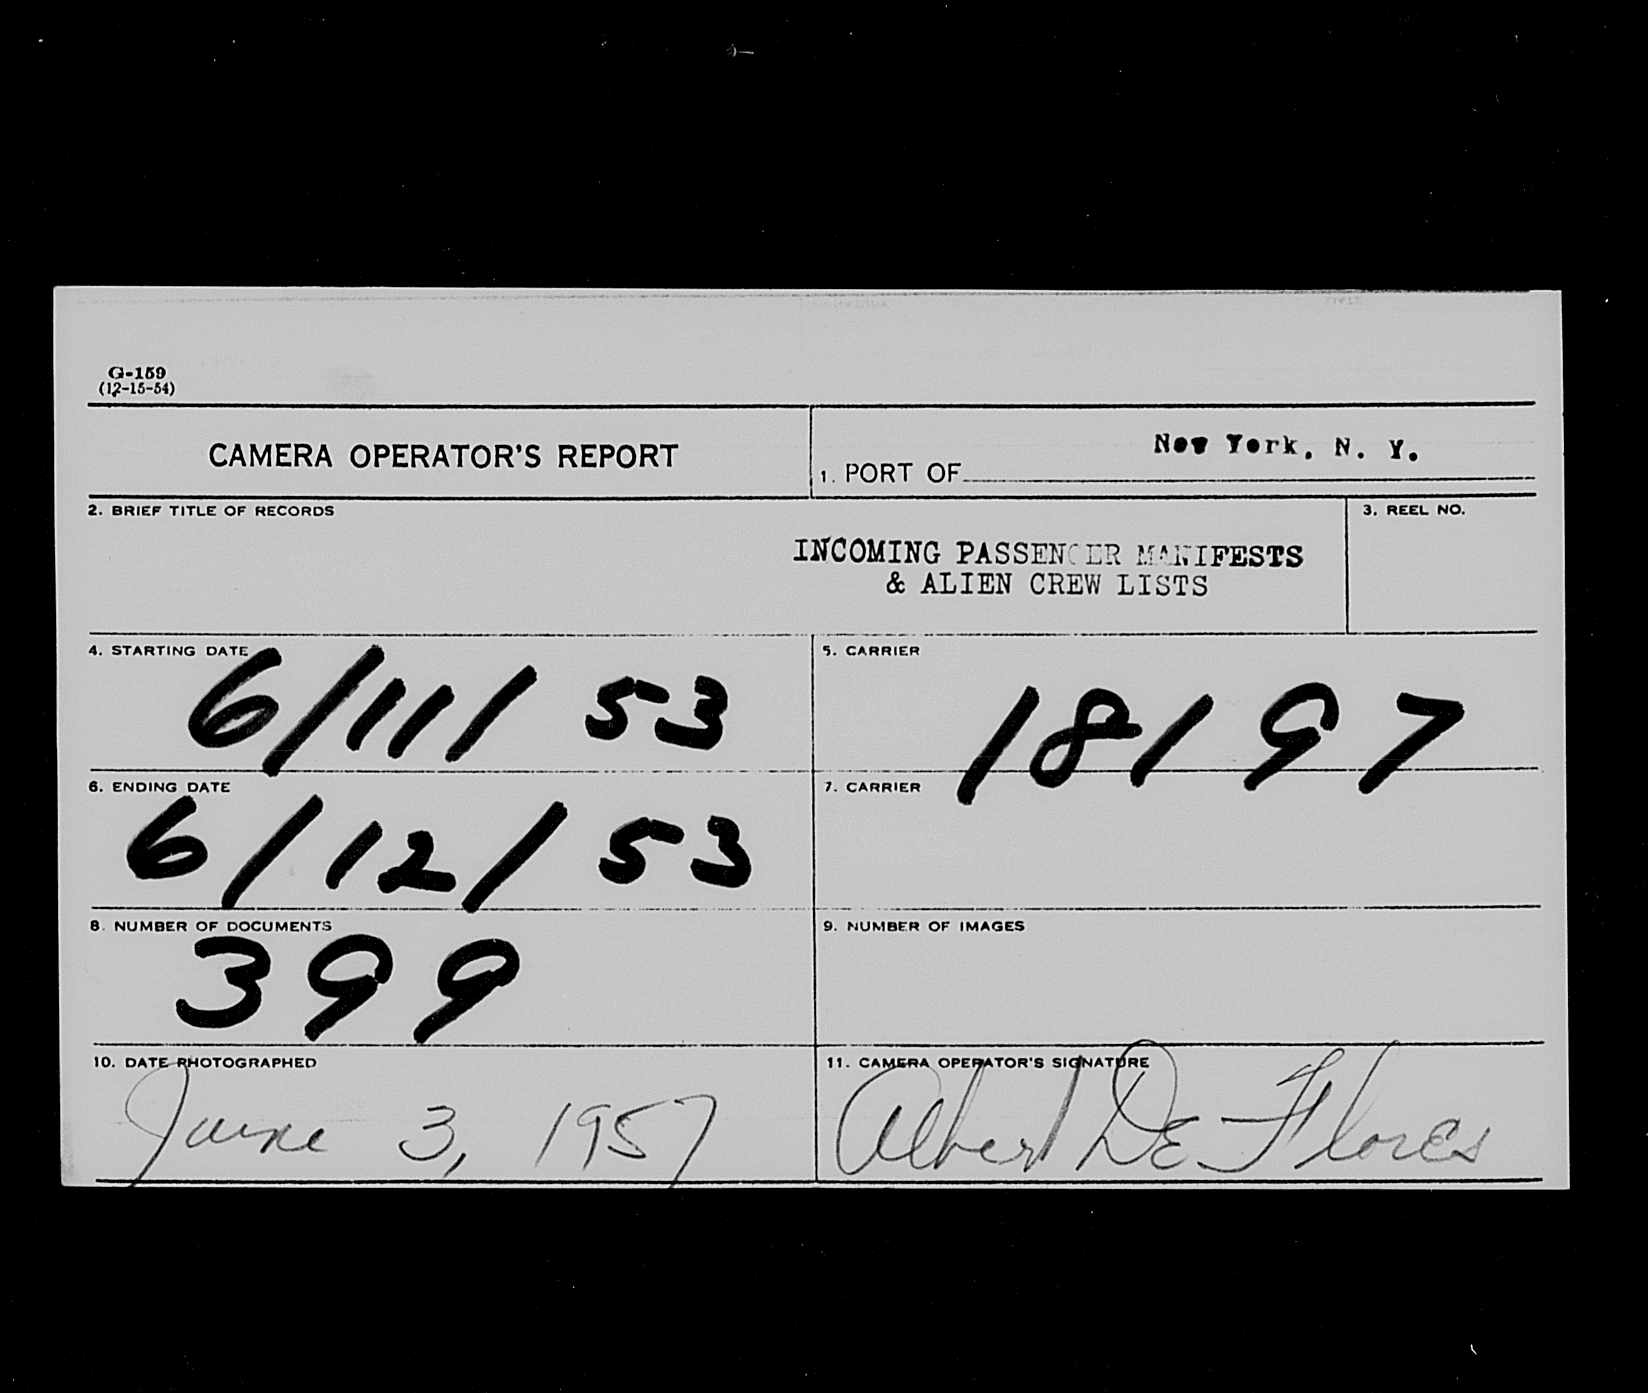 G-159
(12-15-54)
CAMERA OPERATOR'S REPORT
1. PORT OF New York, N. Y.
2. BRIEF TITLE OF RECORDS
INCOMING PASSENGER MANIFESTS
& ALIEN CREW LISTS
3. REEL NO.
4. STARTING DATE
6/11/53
5. CARRIER
18197
6. ENDING DATE
6/12/53
7. CARRIER
8. NUMBER OF DOCUMENTS
399
9. NUMBER OF IMAGES
10. DATE PHOTOGRAPHED
June 3, 1957
11. CAMERA OPERATOR'S SIGNATURE
Albert De Flores